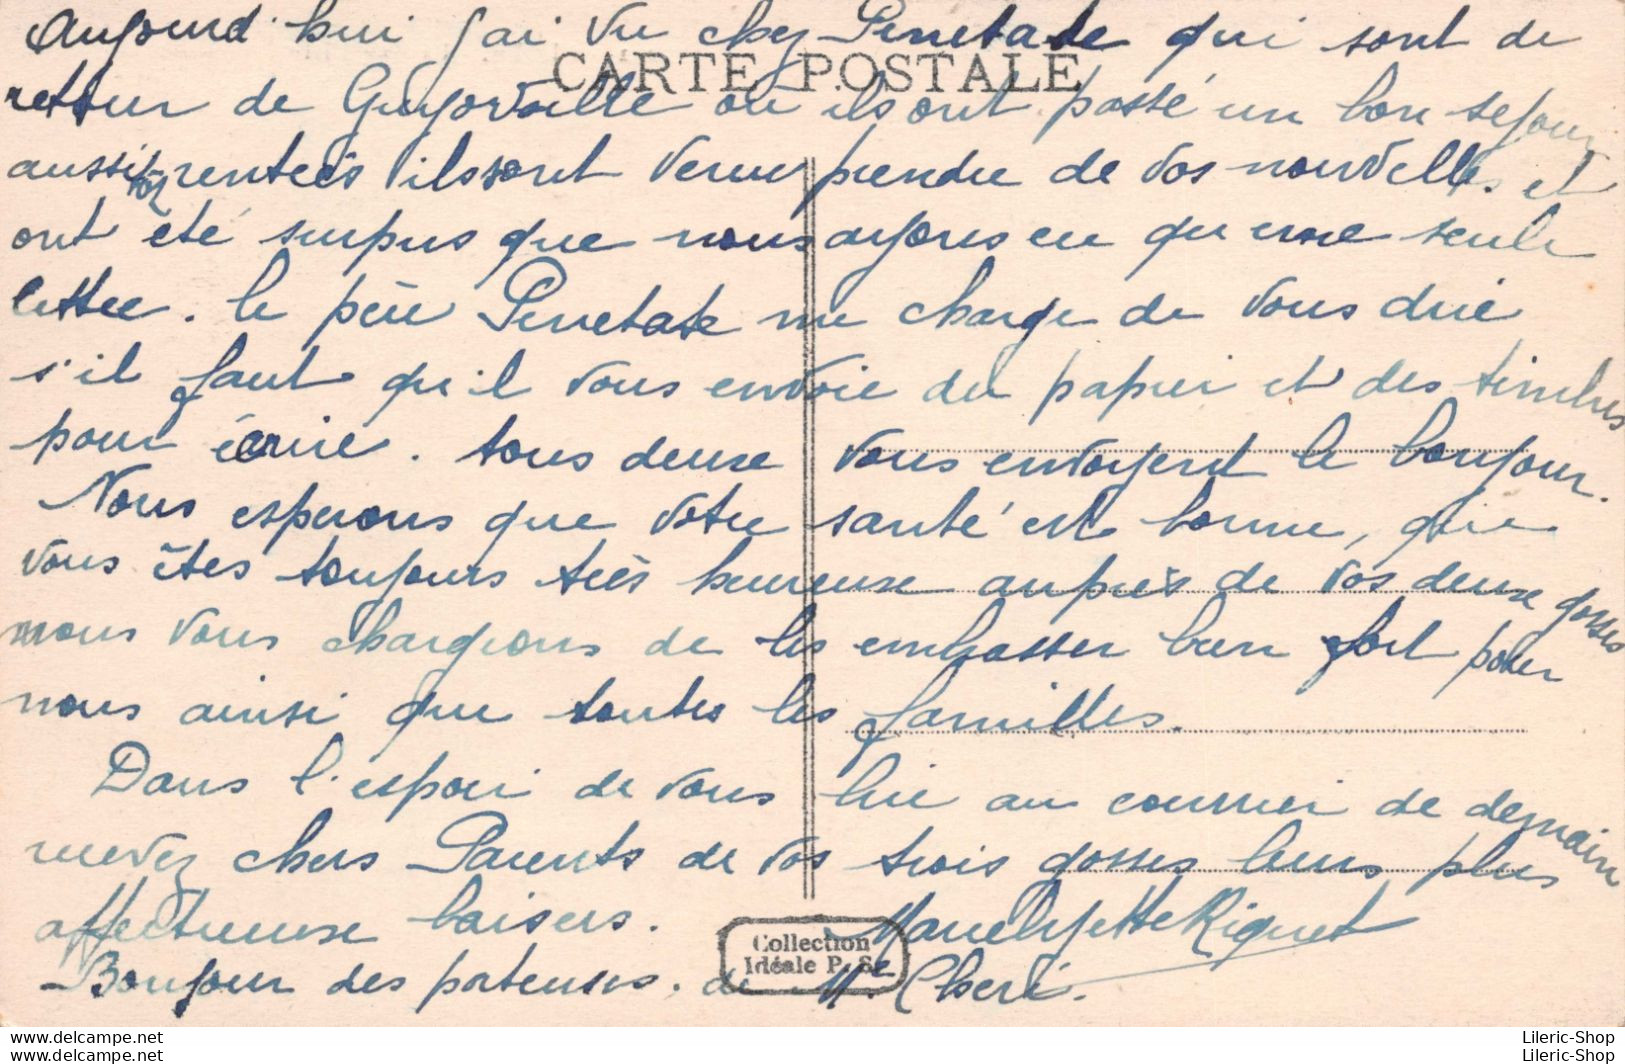 Aujourd'hui j'ai vu chez Penetate qui sont de
CARTE POSTALE
retour de Guyotville où ils ont passé un bon sejour
aussitôt rentées ils sont venus prendre de vos nouvelles et
ont été surpris que nous ayons eu qu'une seule
lettre. le père Penetate me charge de vous dire
s'il faut qu'il vous envoie du papier et des timbres
pour écrire. tous deux vous envoyent le bonjour.
Nous esperons que votre santé est bonne, que
vous êtes toujours très heureuse auprès de vos deux gosses
nous vous chargeons de les embrasser bien fort pour
nous ainsi que toutes les familles.
Dans l'espoir de vous lire au courrier de demain
recevez chers Parents de vos trois gosses leurs plus
affectueuse baisers.
Riquet
Collection
Idéale P. S.
Bonjour des porteuses. de Mr Cheri.
Lileric-Shop
Lileric-Shop
www.delcampe.net
www.delcampe.net